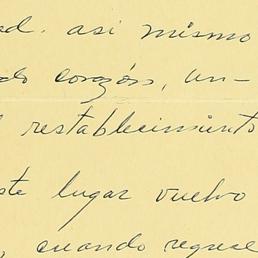 ad. asi mismo
do corazón, un-
l restablecimiento
ste lugar vuelvo
, cuando regrese